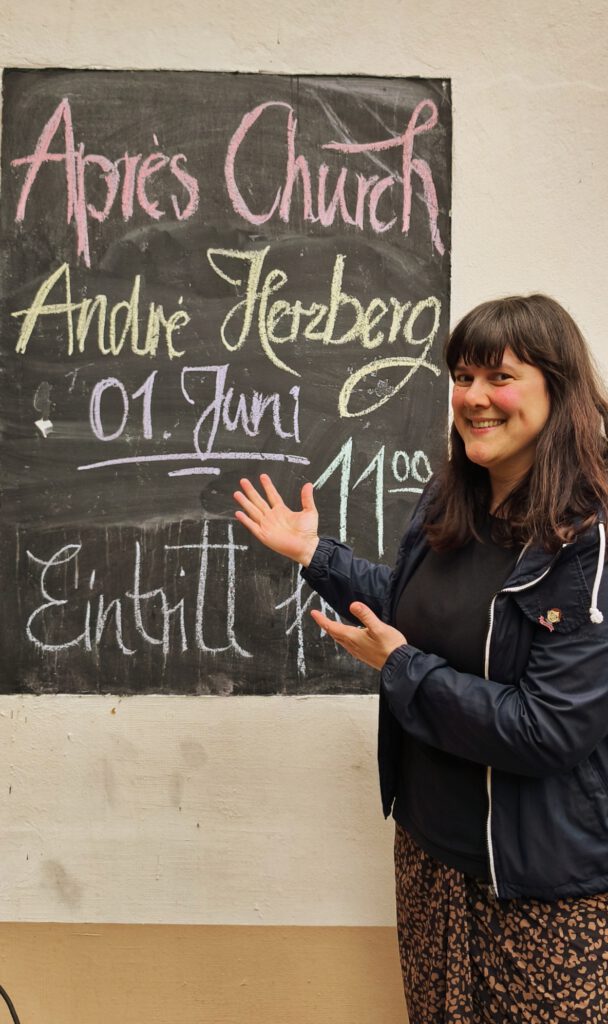 Après Church
André Herzberg
01. Juni
11⁰⁰
Eintritt